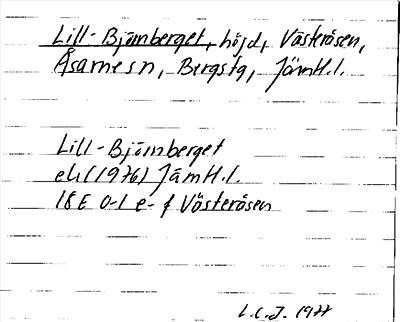 Lill-Björnberget, höjd, Västeråsen,
Åsarnes n, Bergs tg, Jämtl.l.
Lill-Björnberget
ek (1976) Jämtl.l.
18E 0-1 e-f Västeråsen
L.C.J. 1977